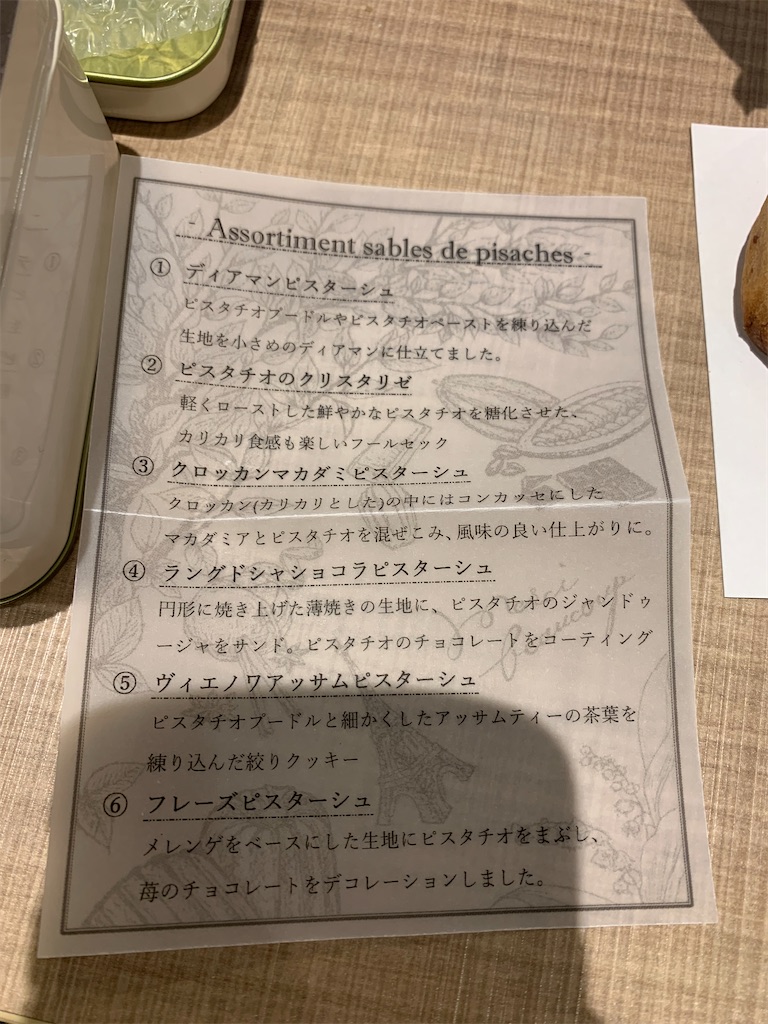 - Assortiment sables de pisaches -
① ディアマンピスターシュ
ピスタチオプードルやピスタチオペーストを練り込んだ
生地を小さめのディアマンに仕立てました。
② ピスタチオのクリスタリゼ
軽くローストした鮮やかなピスタチオを糖化させた、
カリカリ食感も楽しいフールセック
③ クロッカンマカダミピスターシュ
クロッカン(カリカリとした)の中にはコンカッセにした
マカダミアとピスタチオを混ぜこみ、風味の良い仕上がりに。
④ ラングドシャショコラピスターシュ
円形に焼き上げた薄焼きの生地に、ピスタチオのジャンドゥ
ージャをサンド。ピスタチオのチョコレートをコーティング
Merci
Beaucoup
⑤ ヴィエノワアッサムピスターシュ
ピスタチオプードルと細かくしたアッサムティーの茶葉を
練り込んだ絞りクッキー
⑥ フレーズピスターシュ
メレンゲをベースにした生地にピスタチオをまぶし、
苺のチョコレートをデコレーションしました。